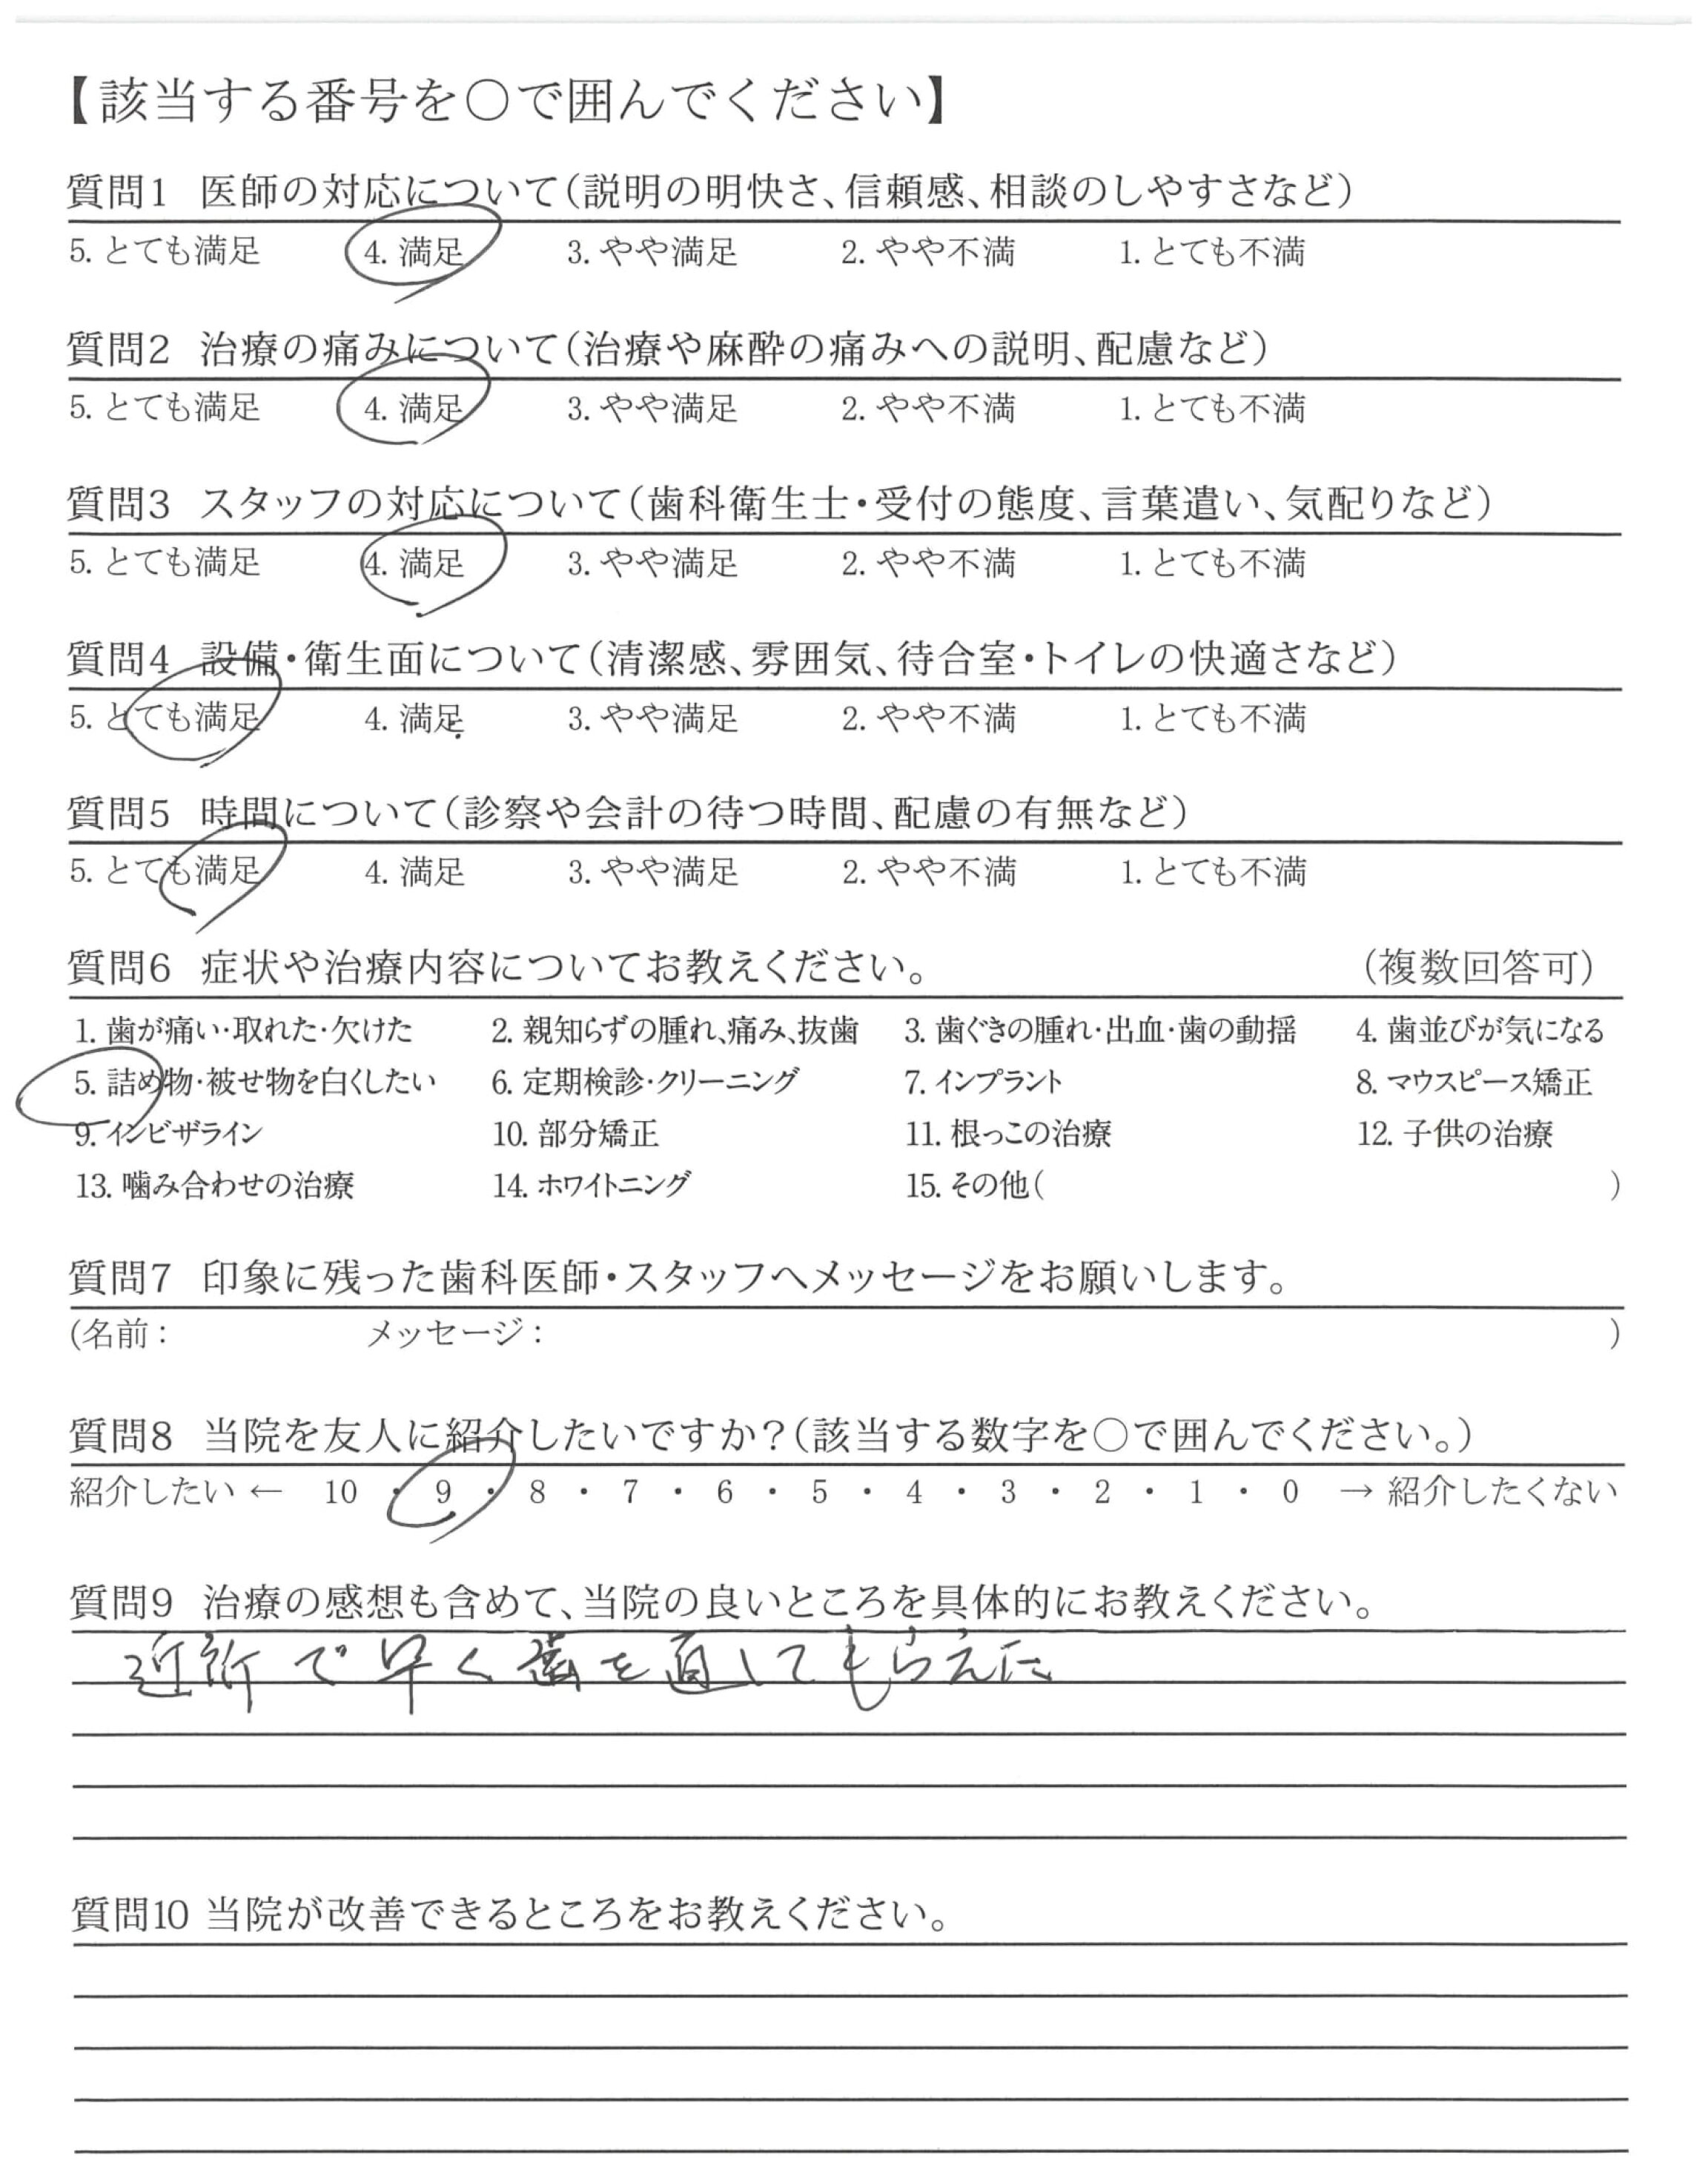 【該当する番号を○で囲んでください】
質問1 医師の対応について(説明の明快さ、信頼感、相談のしやすさなど)
5. とても満足 4. 満足 3. やや満足 2. やや不満 1. とても不満
質問2 治療の痛みについて(治療や麻酔の痛みへの説明、配慮など)
5. とても満足 4. 満足 3. やや満足 2. やや不満 1. とても不満
質問3 スタッフの対応について(歯科衛生士・受付の態度、言葉遣い、気配りなど)
5. とても満足 4. 満足 3. やや満足 2. やや不満 1. とても不満
質問4 設備・衛生面について(清潔感、雰囲気、待合室・トイレの快適さなど)
5. とても満足 4. 満足 3. やや満足 2. やや不満 1. とても不満
質問5 時間について(診察や会計の待つ時間、配慮の有無など)
5. とても満足 4. 満足 3. やや満足 2. やや不満 1. とても不満
質問6 症状や治療内容についてお教えください。 (複数回答可)
1. 歯が痛い・取れた・欠けた 2. 親知らずの腫れ、痛み、抜歯 3. 歯ぐきの腫れ・出血・歯の動揺 4. 歯並びが気になる
5. 詰め物・被せ物を白くしたい 6. 定期検診・クリーニング 7. インプラント 8. マウスピース矯正
9. インビザライン 10. 部分矯正 11. 根っこの治療 12. 子供の治療
13. 噛み合わせの治療 14. ホワイトニング 15. その他( )
質問7 印象に残った歯科医師・スタッフへメッセージをお願いします。
(名前: メッセージ: )
質問8 当院を友人に紹介したいですか?(該当する数字を○で囲んでください。)
紹介したい ← 10 ・ 9 ・ 8 ・ 7 ・ 6 ・ 5 ・ 4 ・ 3 ・ 2 ・ 1 ・ 0 → 紹介したくない
質問9 治療の感想も含めて、当院の良いところを具体的にお教えください。
近所で早く歯を直してもらえた
質問10 当院が改善できるところをお教えください。